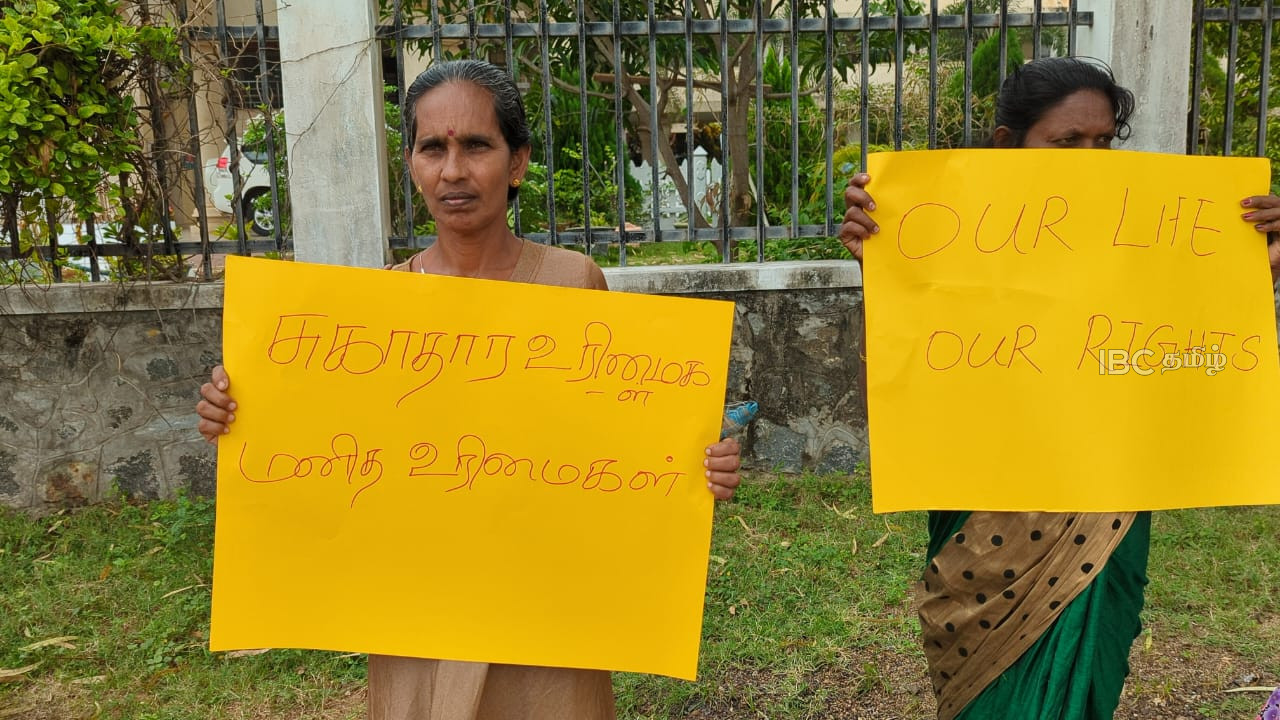 சுகாதார உரிமைகள்
மனித உரிமைகள்
OUR LIFE
OUR RIGHTS
IBC தமிழ்